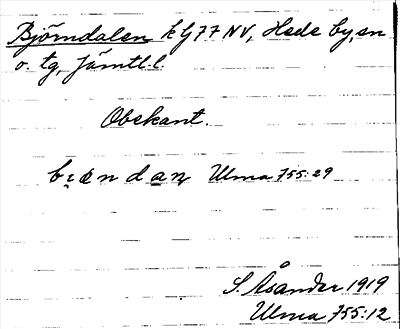 Björndalen k G77 NV, Hede by, sn
o. tg, Jämtl. l.
Obekant.
Ulma 755:29
S. Åsander 1919
Ulma 755:12